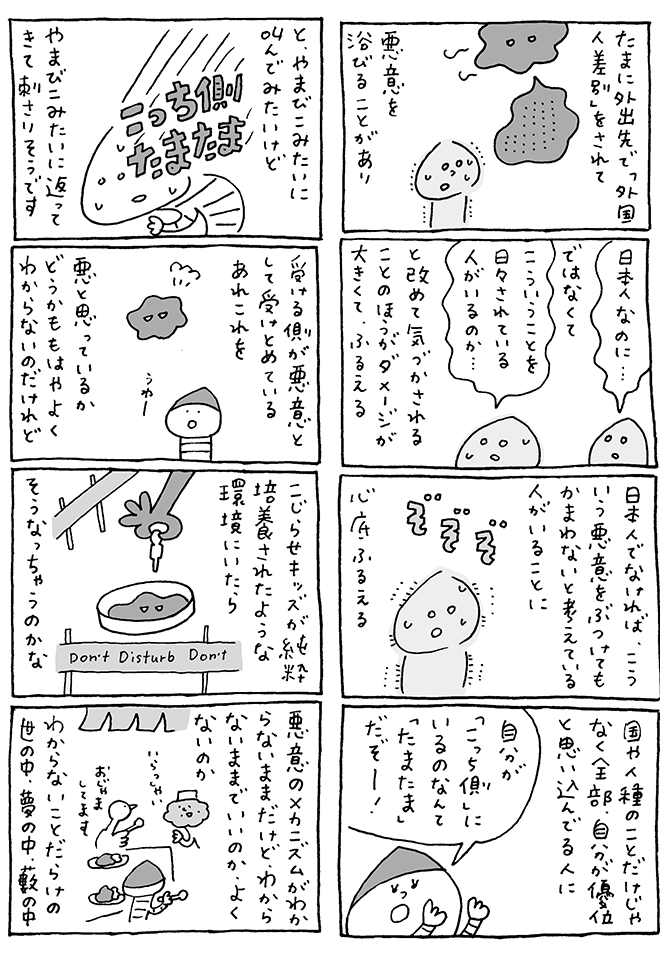 たまに外出先で「外国
人差別」をされて
悪意を
浴びることがあり
日本人なのに…
ではなくて
こういうことを
日々されている
人がいるのか…
と改めて気づかされる
ことのほうがダメージが
大きくて、ふるえる
日本人でなければ、こう
いう悪意をぶつけても
かまわないと考えている
人がいることに
心底ふるえる
国や人種のことだけじゃ
なく全部、自分が優位
と思い込んでる人に
自分が
「こっち側」に
いるのなんて
「たまたま」
だぞー！
と、やまびこみたいに
叫んでみたいけど
こっち側
たまたま
やまびこみたいに返って
きて刺さりそうです
受ける側が悪意と
して受けとめている
あれこれを
うわー
悪と思っているか
どうかももはやよく
わからないのだけれど
こじらせキッズが純粋
培養されたような
環境にいたら
そうなっちゃうのかな
Don't Disturb Don't
悪意のメカニズムがわか
らないままだけど、わから
ないままでいいのか、よく
ないのか
いらっしゃい
おじゃま
してます
わからないことだらけの
世の中、夢の中、藪の中